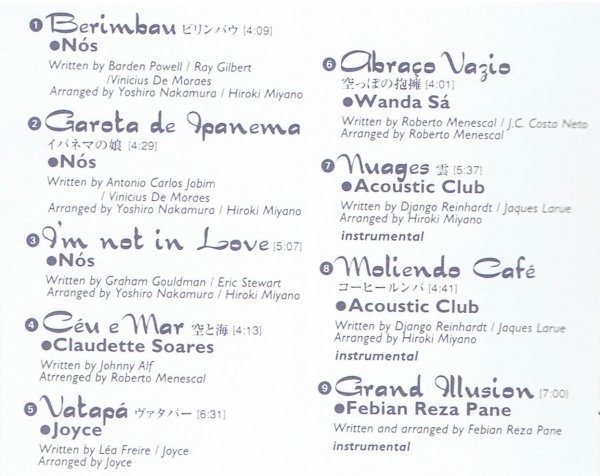 ❶ Berimbau ビリンバウ [4:09]
●Nós
Written by Barden Powell / Ray Gilbert
/Vinicius De Moraes
Arranged by Yoshiro Nakamura / Hiroki Miyano
❷ Garota de Ipanema
イパネマの娘 [4:29]
●Nós
Written by Antonio Carlos Jobim
/ Vinicius De Moraes
Arranged by Yoshiro Nakamura / Hiroki Miyano
❸ I'm not in Love [5:07]
●Nós
Written by Graham Gouldman / Eric Stewart
Arranged by Yoshiro Nakamura / Hiroki Miyano
❹ Céu e Mar 空と海 [4:13]
●Claudette Soares
Written by Johnny Alf
Atrrenged by Roberto Menescal
❺ Vatapá ヴァタパー [6:31]
●Joyce
Written by Léa Freire / Joyce
Arranged by Joyce
❻ Abraço Vazio
空っぽの抱擁 [4:01]
●Wanda Sá
Written by Roberto Menescal / J.C. Costa Neto
Arranged by Roberto Menescal
❼ Nuages 雲 [5:37]
●Acoustic Club
Written by Django Reinhardt / Jaques Larue
Arranged by Hiroki Miyano
instrumental
❽ Moliendo Café
コーヒールンバ [4:41]
●Acoustic Club
Written by Django Reinhardt / Jaques Larue
Arranged by Hiroki Miyano
instrumental
❾ Grand Illusion [7:00]
●Febian Reza Pane
Written and arranged by Febian Reza Pane
instrumental